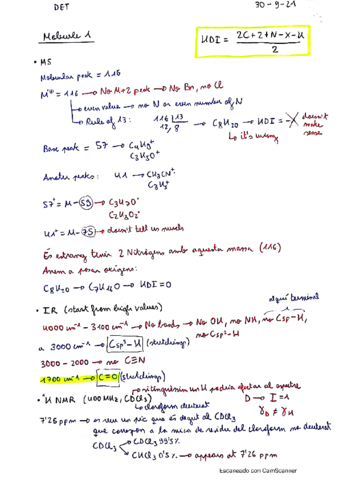 DET
30-9-21
Molecule 1
HDI = 2C+2+N-X-H / 2
• MS
Molecular peak = 116
M⁺ = 116 → No M+2 peak → No Br, no Cl
→ even value → no N or even number of N
→ Rule of 13: 116 |13 → C₈H₂₀ → HDI = - X doesn't make sense
12, 8 ↳ it's wrong
Base peak = 57 → C₄H₉⁺
C₃H₅O⁺
Another peaks: 41 → CH₃CN⁺
C₃H₅⁺
57⁺ = M-59 → C₃H₇O⁺
C₂H₃O₂⁺
41⁺ = M-75 → doesn't tell us much
És estrany tenir 2 Nitrògens amb aquesta massa (116)
Anem a posar oxígens:
C₈H₂₀ → C₇H₁₆O → HDI=0
• IR (start from high values) alquí terminal
4000 cm⁻¹ - 3100 cm⁻¹ → No bands → No OH, no NH, no Csp-H,
no Csp²-H
a 3000 cm⁻¹ → Csp³-H (stretching)
3000 - 2000 → no C≡N
1700 cm⁻¹ → C=O (stretching)
• ¹H NMR (400 MHz, CDCl₃) D → I=1
→ cloroform deuterat γD ≠ γH
7'26 ppm → es veu un pic que és degut al CDCl₃
que correspon a la mica de residu del cloroform no deuterat
CDCl₃ → CDCl₃ 99'5%
→ CHCl₃ 0'5% → appears at 7'26 ppm
Escaneado con CamScanner